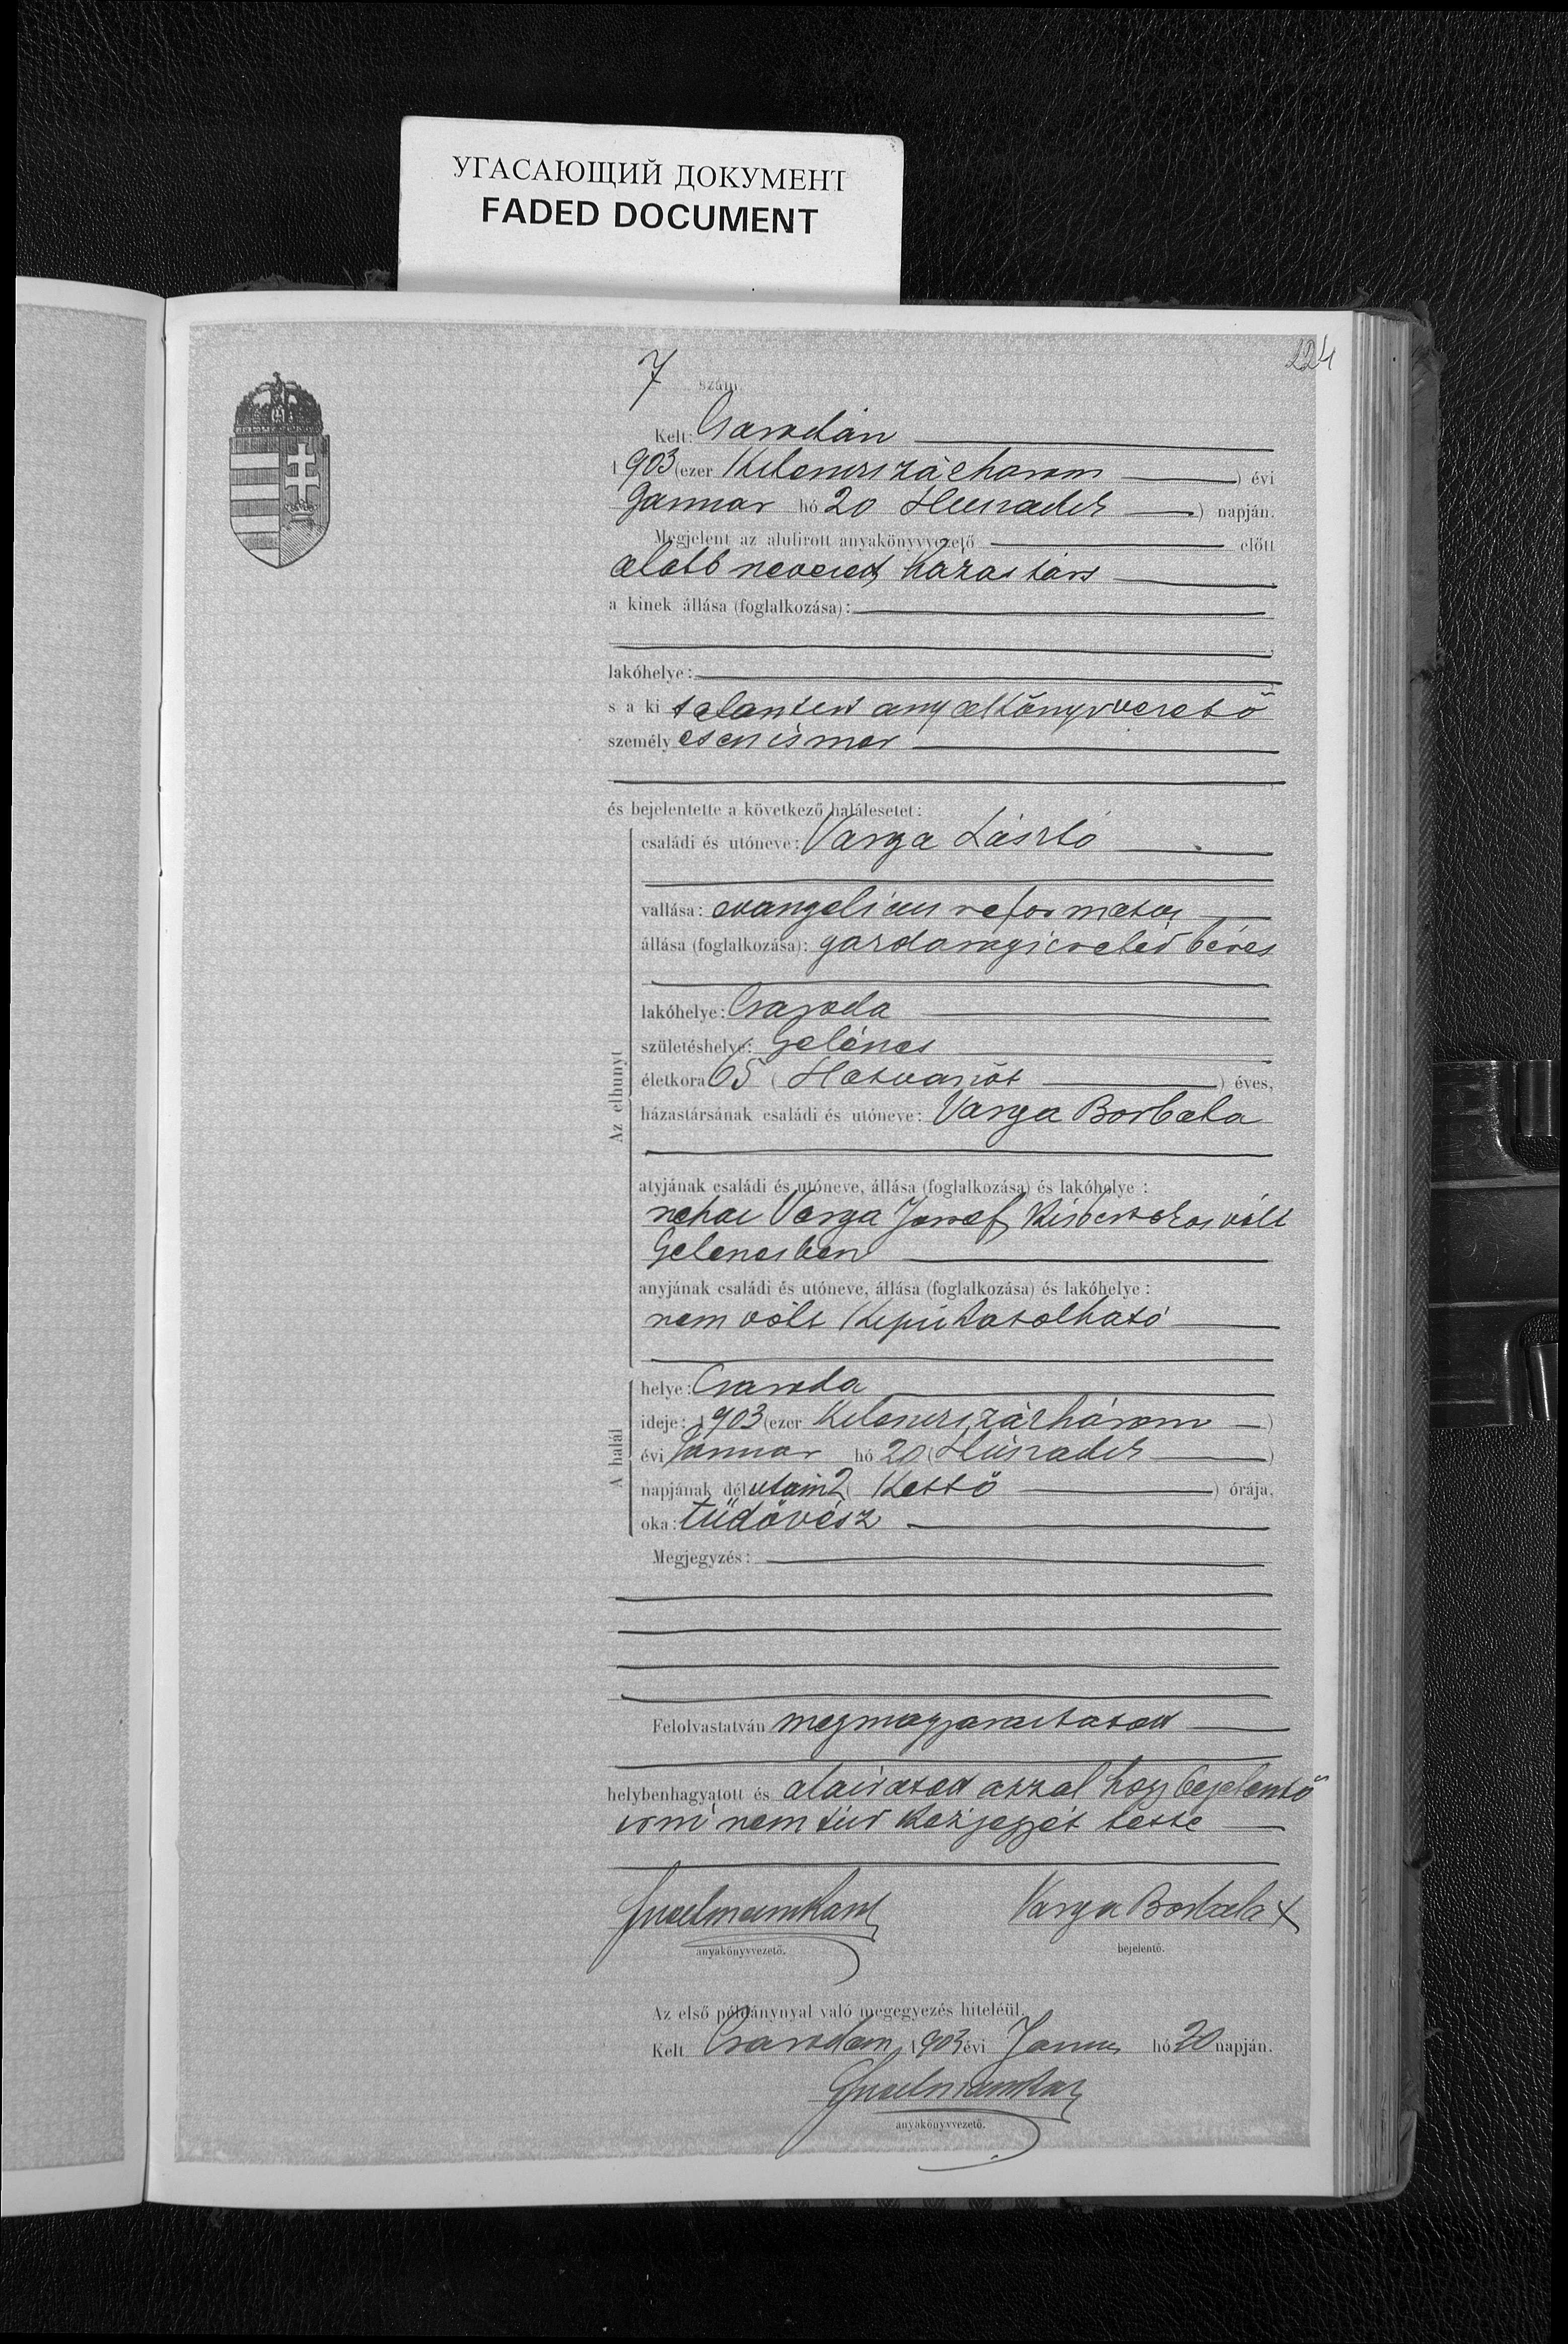 УГАСАЮЩИЙ ДОКУМЕНТ
FADED DOCUMENT
224
7 szám.
Kelt: Csarodán
1903 (ezer Kilenczszázhárom ) évi
Januar hó 20 Huszadik ) napján.
Megjelent az alulirott anyakönyvvezető előtt
alább nevezett házastárs
a kinek állása (foglalkozása):
lakóhelye:
s a ki anyakönyvvezető
személyesen ismer
és bejelentette a következő halálesetet:
Az elhunyt
családi és utóneve: Varga László
vallása: evangelicus reformatus
állása (foglalkozása): béres
lakóhelye: Csaroda
születéshelye: Gelénes
életkora 65 (Hatvanöt ) éves,
házastársának családi és utóneve: Varga Borbala
atyjának családi és utóneve, állása (foglalkozása) és lakóhelye:
nehai Varga József Kisbirtokos volt
Gelenesben
anyjának családi és utóneve, állása (foglalkozása) és lakóhelye:
nem volt kipuhatolható
A halál
helye: Csaroda
ideje: 1903 (ezer Kilenczszázhárom )
évi Januar hó 20 (Húszadik )
napjának délutáni 2 (Kettő ) órája.
oka: tüdővész
Megjegyzés:
Felolvastatván megmagyaraztatott
helybenhagyatott és alairatott azzal hogy bejelentő
irni nem tud kézjegyét tette
anyakönyvvezető.
Varga Borbala X
bejelentő.
Az első példánynyal való megegyezés hiteléül.
Kelt Csarodan, 1903 évi Janu hó 20 napján.
anyakönyvvezető.